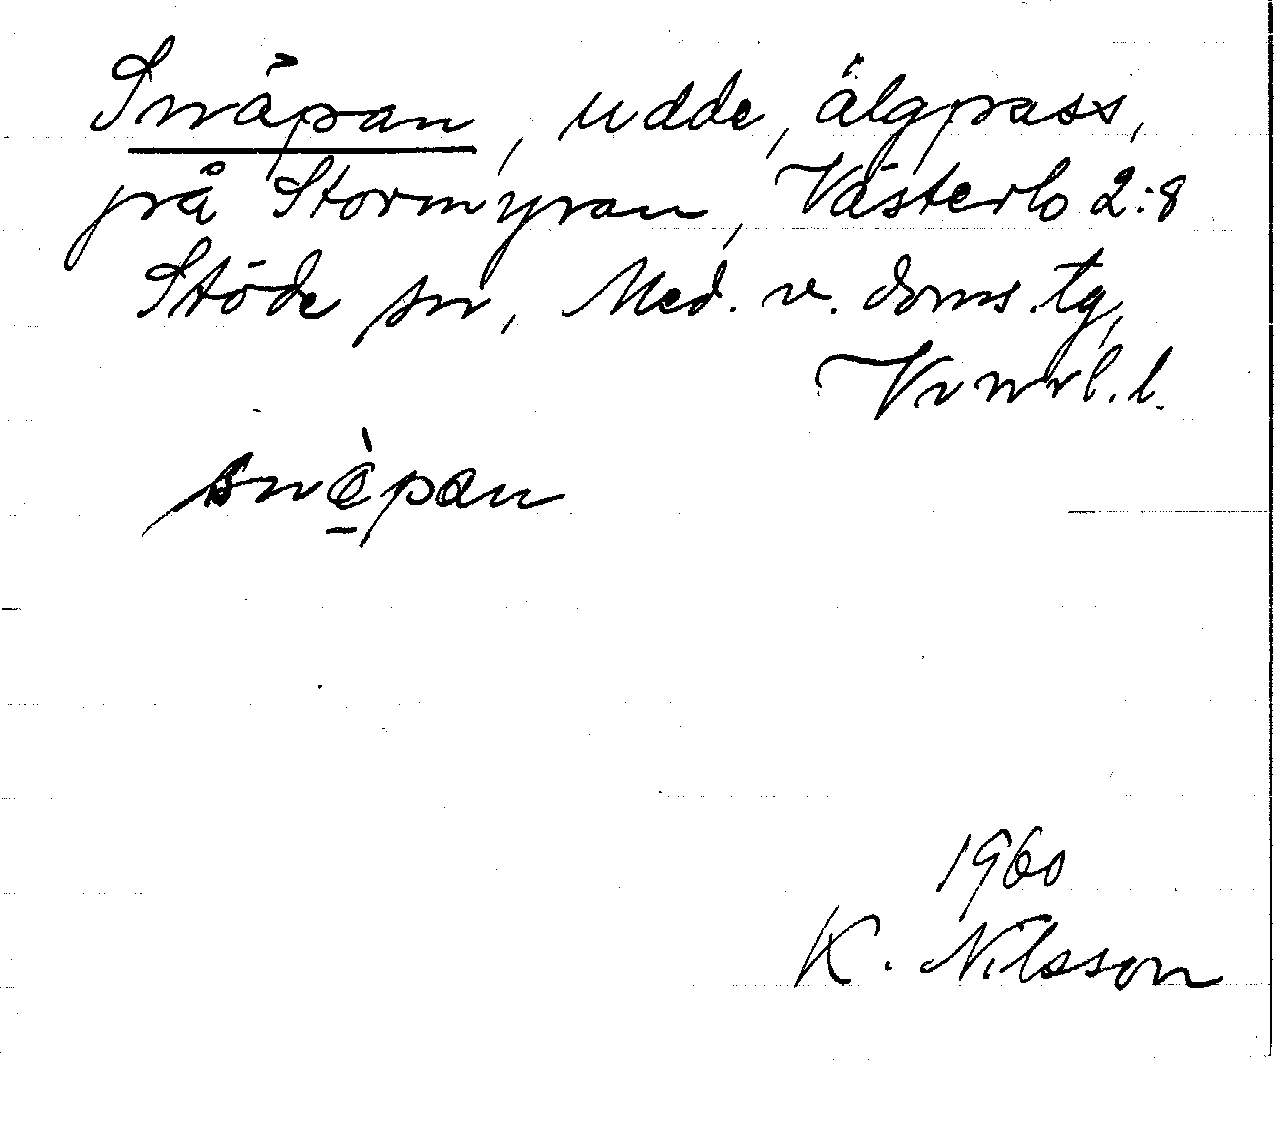 Snåpan, udde, älgpass,
på Stormyran, Västerlo 2:8
Stöde sn, Med. v. doms.tg,
Vrnrl.l.
snàpan
1960
K. Nilsson